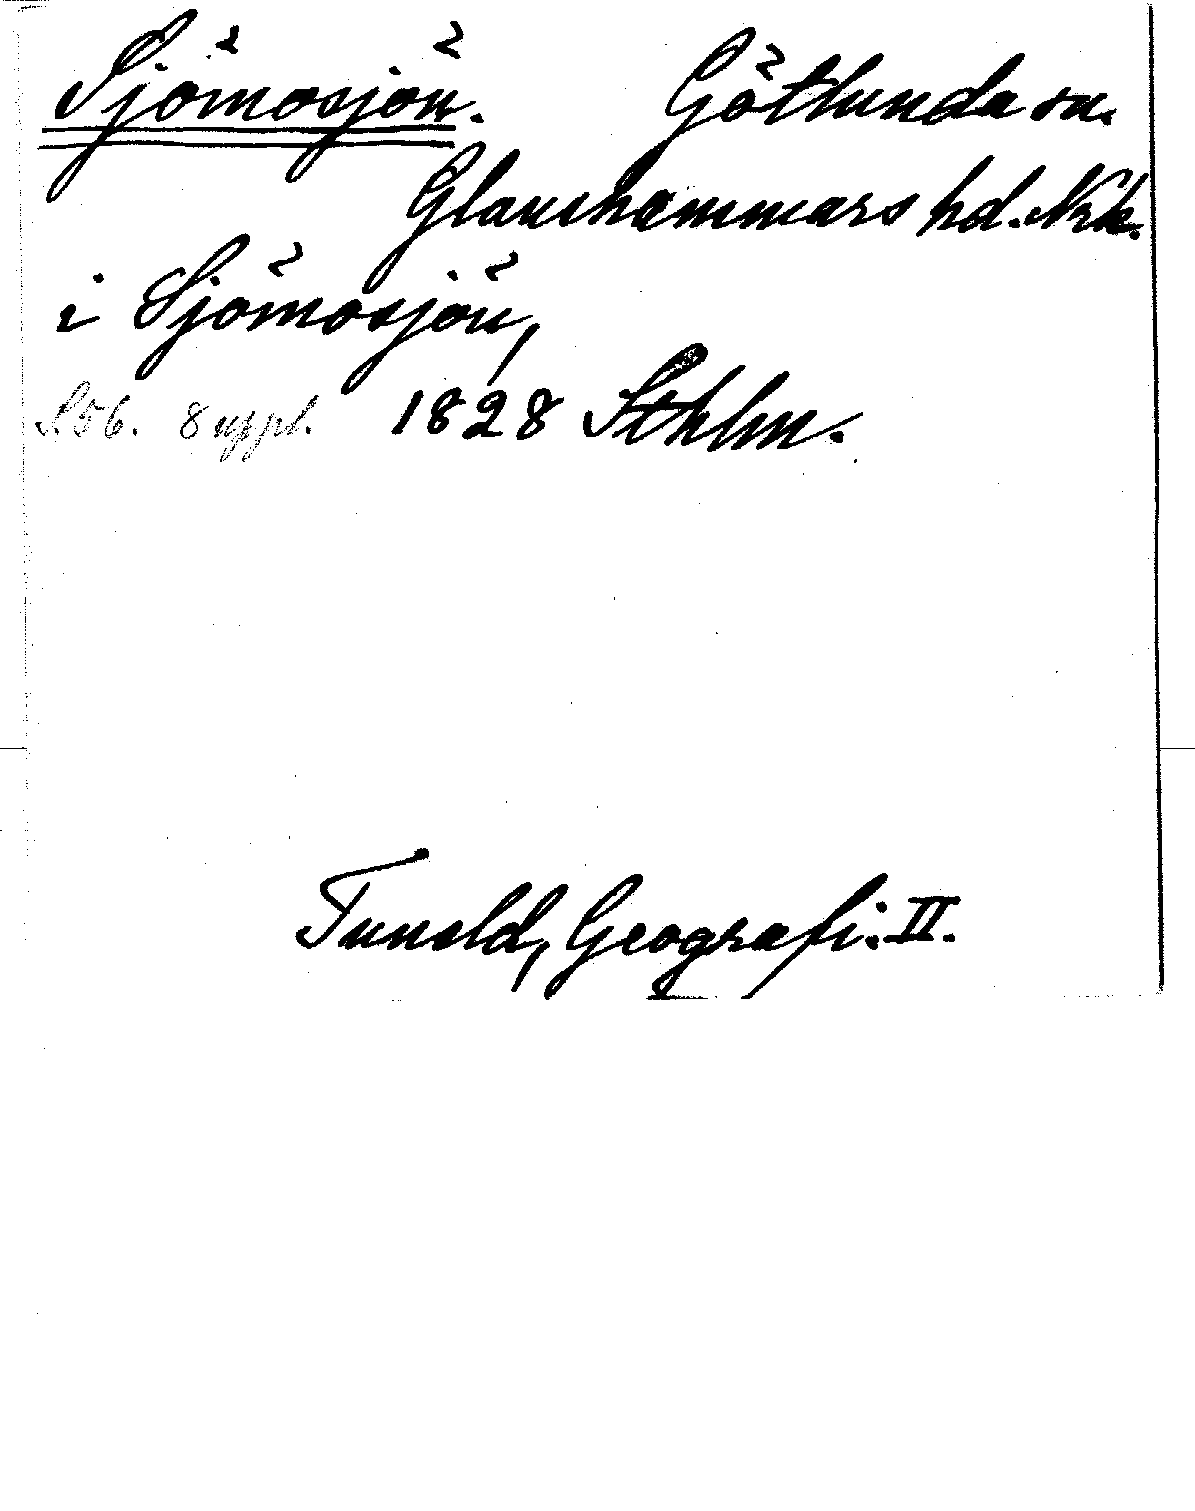 Sjömosjön. Götlunda sn.
Glanshammars hd. Nrk.
i Sjömosjön,
S. 56. 8 uppl. 1828 Sthlm.
Tuneld, Geografi: II.